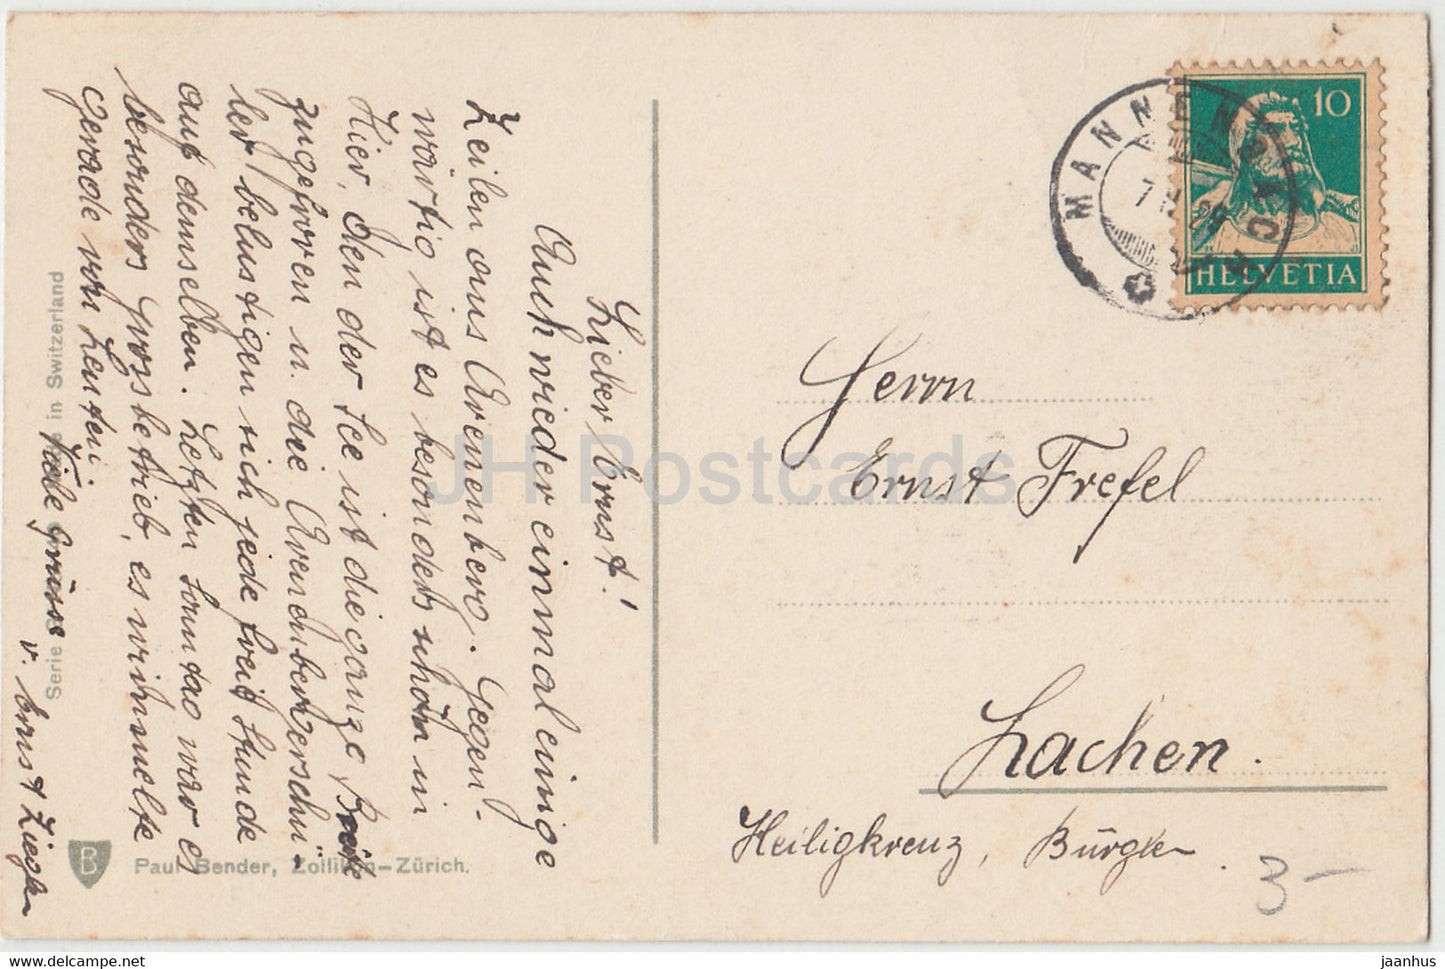 Lieber Ernst!
Auch wieder einmal einige
Zeilen aus Arenenberg. Gegen-
wärtig ist es besonders schön in
Hier, den der See ist die ganze Breite
zugefroren u. die Arenenberger schü-
ler belustigen sich jede freie Stunde
auf demselben. Letzten Sonntag war es
besonders Grossbetrieb, es wimmelte
gerade von Leuten.
Viele Grüsse
v. Ernst
Serie
in Switzerland
B
Paul Bender, Zollikon–Zürich.
MANNENBACH
10
HELVETIA
Herrn
Ernst Frefel
Lachen.
Heiligkreuz, Bürglen
3 –
JH Postcards
jaanhus